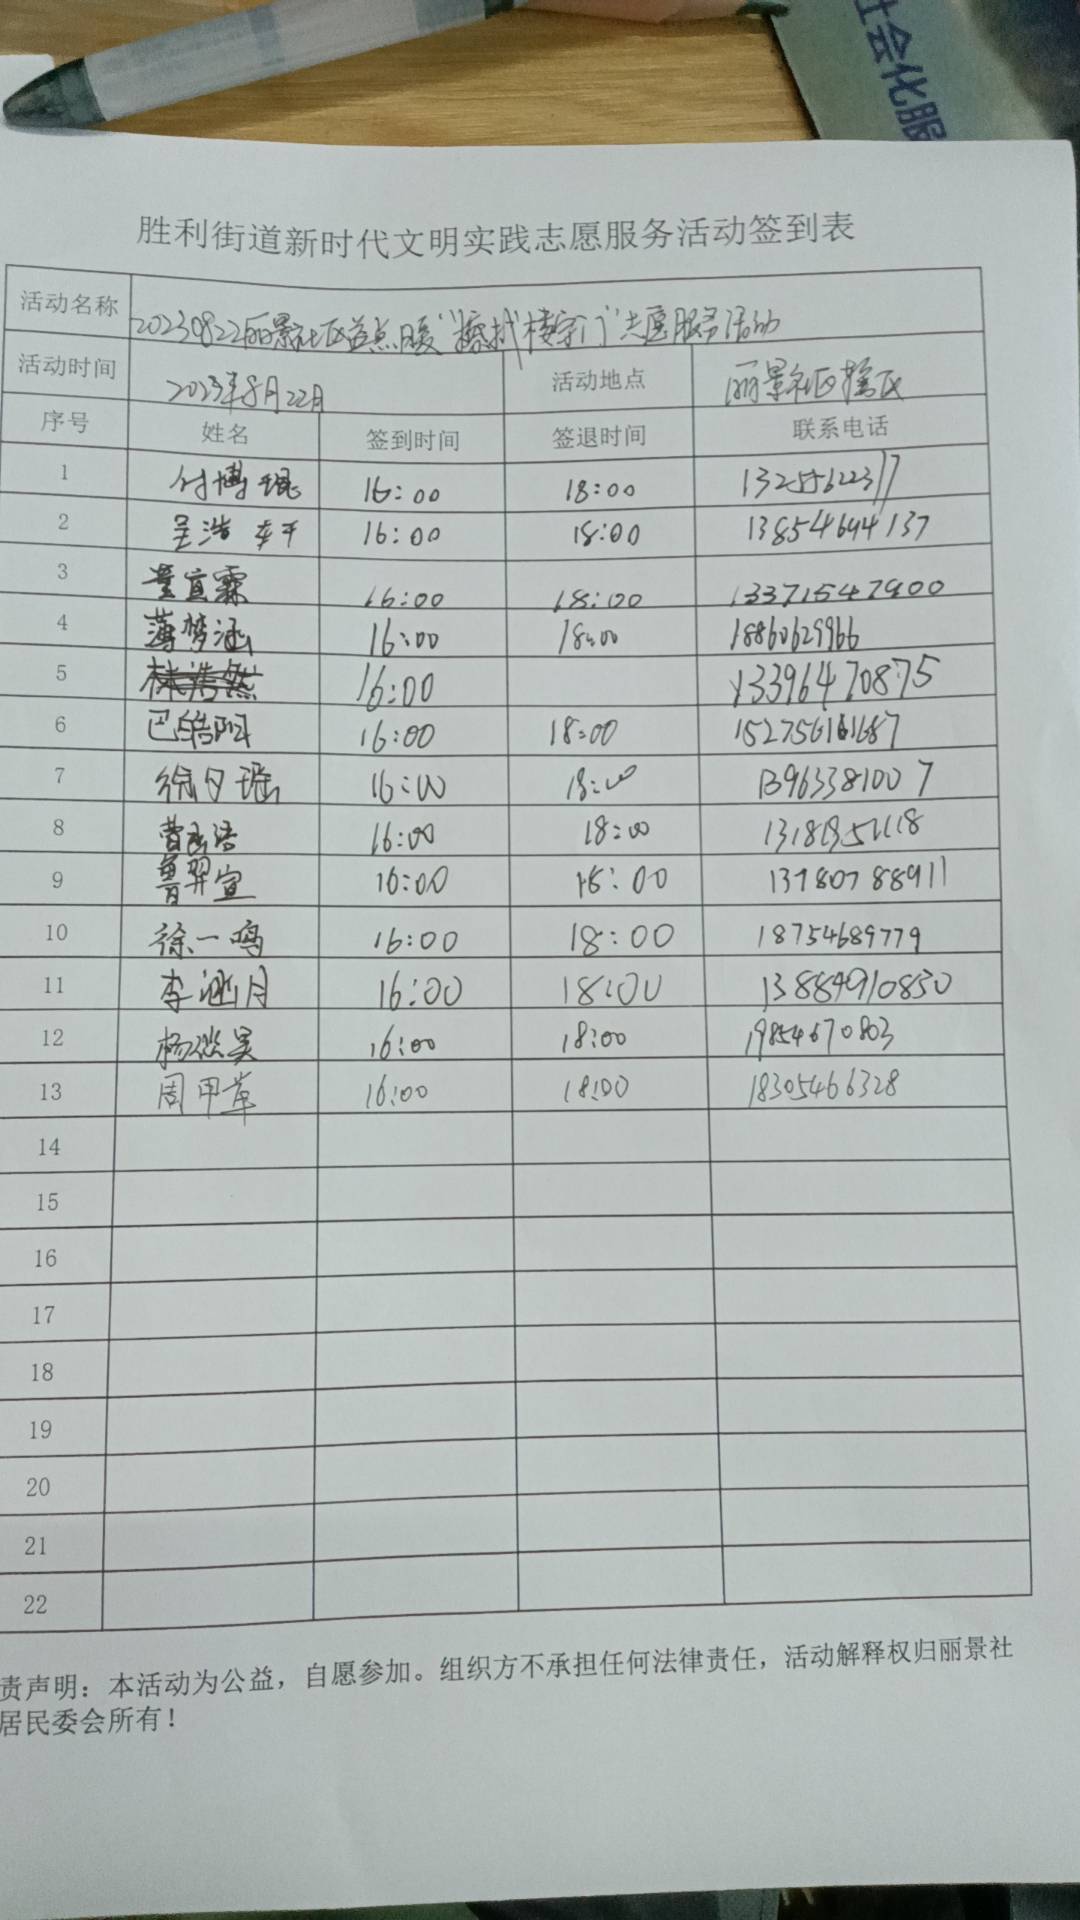 社会化服
胜利街道新时代文明实践志愿服务活动签到表
活动名称 20230822丽景社区益点暖“擦拭楼宇门”志愿服务活动
活动时间 2023年8月22日 活动地点 丽景社区辖区
序号 姓名 签到时间 签退时间 联系电话
1 付博琨 16:00 18:00 13255622377
2 吴浩轩 16:00 18:00 13854694137
3 董宜霖 16:00 18:00 13371547900
4 薄梦涵 16:00 18:00 18860629966
5 林浩然 16:00 13396470875
6 巴皓阳 16:00 18:00
7 徐夕瑶 16:00 18:00 13963381007
8 16:00 18:00
9 鲁羿宣 16:00 18:00 13780788911
10 徐一鸣 16:00 18:00 18754689779
11 李涵月 16:00 18:00
12 16:00 18:00 19854670803
13 周甲苹 16:00 18:00 18305466328
14
15
16
17
18
19
20
21
22
责声明：本活动为公益，自愿参加。组织方不承担任何法律责任，活动解释权归丽景社
居民委会所有！